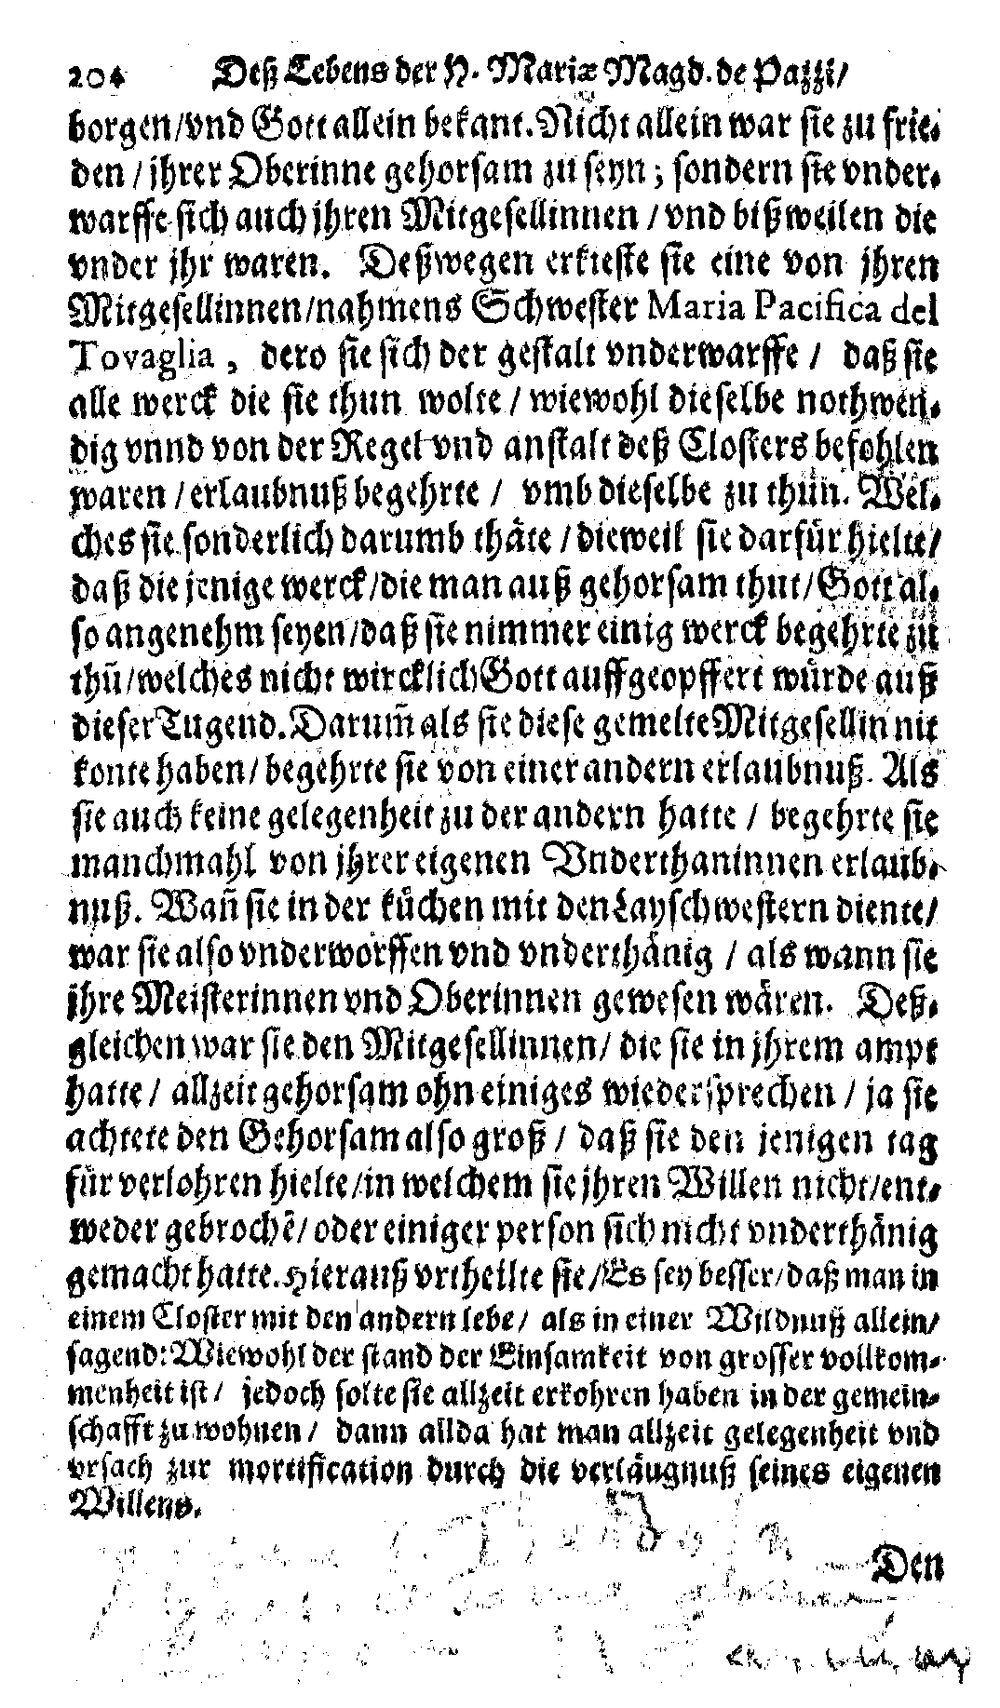 204 Deß Lebens der H. Mariæ Magd. de Pazzi/
borgen/vnd Gott allein bekant. Nicht allein war sie zu frie-
den / jhrer Oberinne gehorsam zu seyn ; sondern sie vnder-
warffe sich auch jhren Mitgesellinnen / vnd bißweilen die
vnder jhr waren. Deßwegen erkieste sie eine von jhren
Mitgesellinnen/nahmens Schwester Maria Pacifica del
Tovaglia , dero sie sich der gestalt vnderwarffe / daß sie
alle werck die sie thun wolte / wiewohl dieselbe nothwen-
dig vnnd von der Regel vnd anstalt deß Closters befohlen
waren / erlaubnuß begehrte / vmb dieselbe zu thun. Wel-
ches sie sonderlich darumb thäte / dieweil sie darfür hielte/
daß die jenige werck/die man auß gehorsam thut/Gott al-
so angenehm seyen/daß sie nimmer einig werck begehrte zu
thũ/welches nicht wircklich Gott auffgeopffert würde auß
dieser Tugend. Darum̃ als sie diese gemelte Mitgesellin nit
konte haben/ begehrte sie von einer andern erlaubnuß. Als
sie auch keine gelegenheit zu der andern hatte / begehrte sie
manchmahl von jhrer eigenen Vnderthaninnen erlaub-
nuß. Wañ sie in der küchen mit den Layschwestern diente/
war sie also vnderworffen vnd vnderthänig / als wann sie
jhre Meisterinnen vnd Oberinnen gewesen wären. Deß-
gleichen war sie den Mitgesellinnen/ die sie in jhrem ampt
hatte / allzeit gehorsam ohn einiges wiedersprechen / ja sie
achtete den Gehorsam also groß / daß sie den jenigen tag
für verlohren hielte/in welchem sie jhren Willen nicht/ent-
weder gebrochẽ/ oder einiger person sich nicht vnderthänig
gemacht hatte. Hierauß vrtheilte sie/Es sey besser/daß man in
einem Closter mit den andern lebe/ als in einer Wildnuß allein/
sagend: Wiewohl der stand der Einsamkeit von grosser vollkom-
menheit ist/ jedoch solte sie allzeit erkohren haben in der gemein-
schafft zu wohnen/ dann allda hat man allzeit gelegenheit vnd
vrsach zur mortification durch die verläugnuß seines eigenen
Willens.
Den